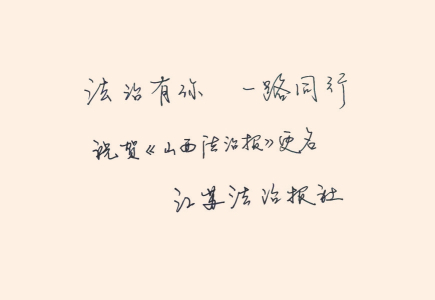 法治有你 一路同行
祝贺《山西法治报》更名
江苏法治报社